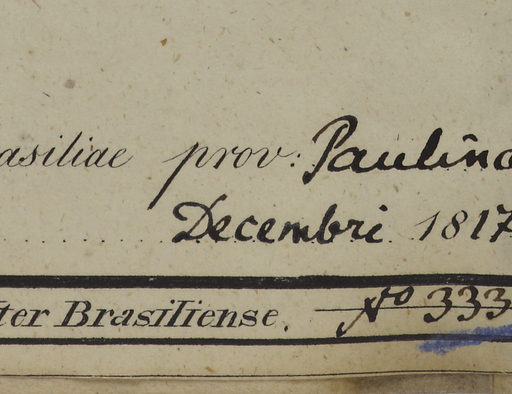 asiliae prov: Paulina
Decembri 1817
ter Brasiliense. No 333